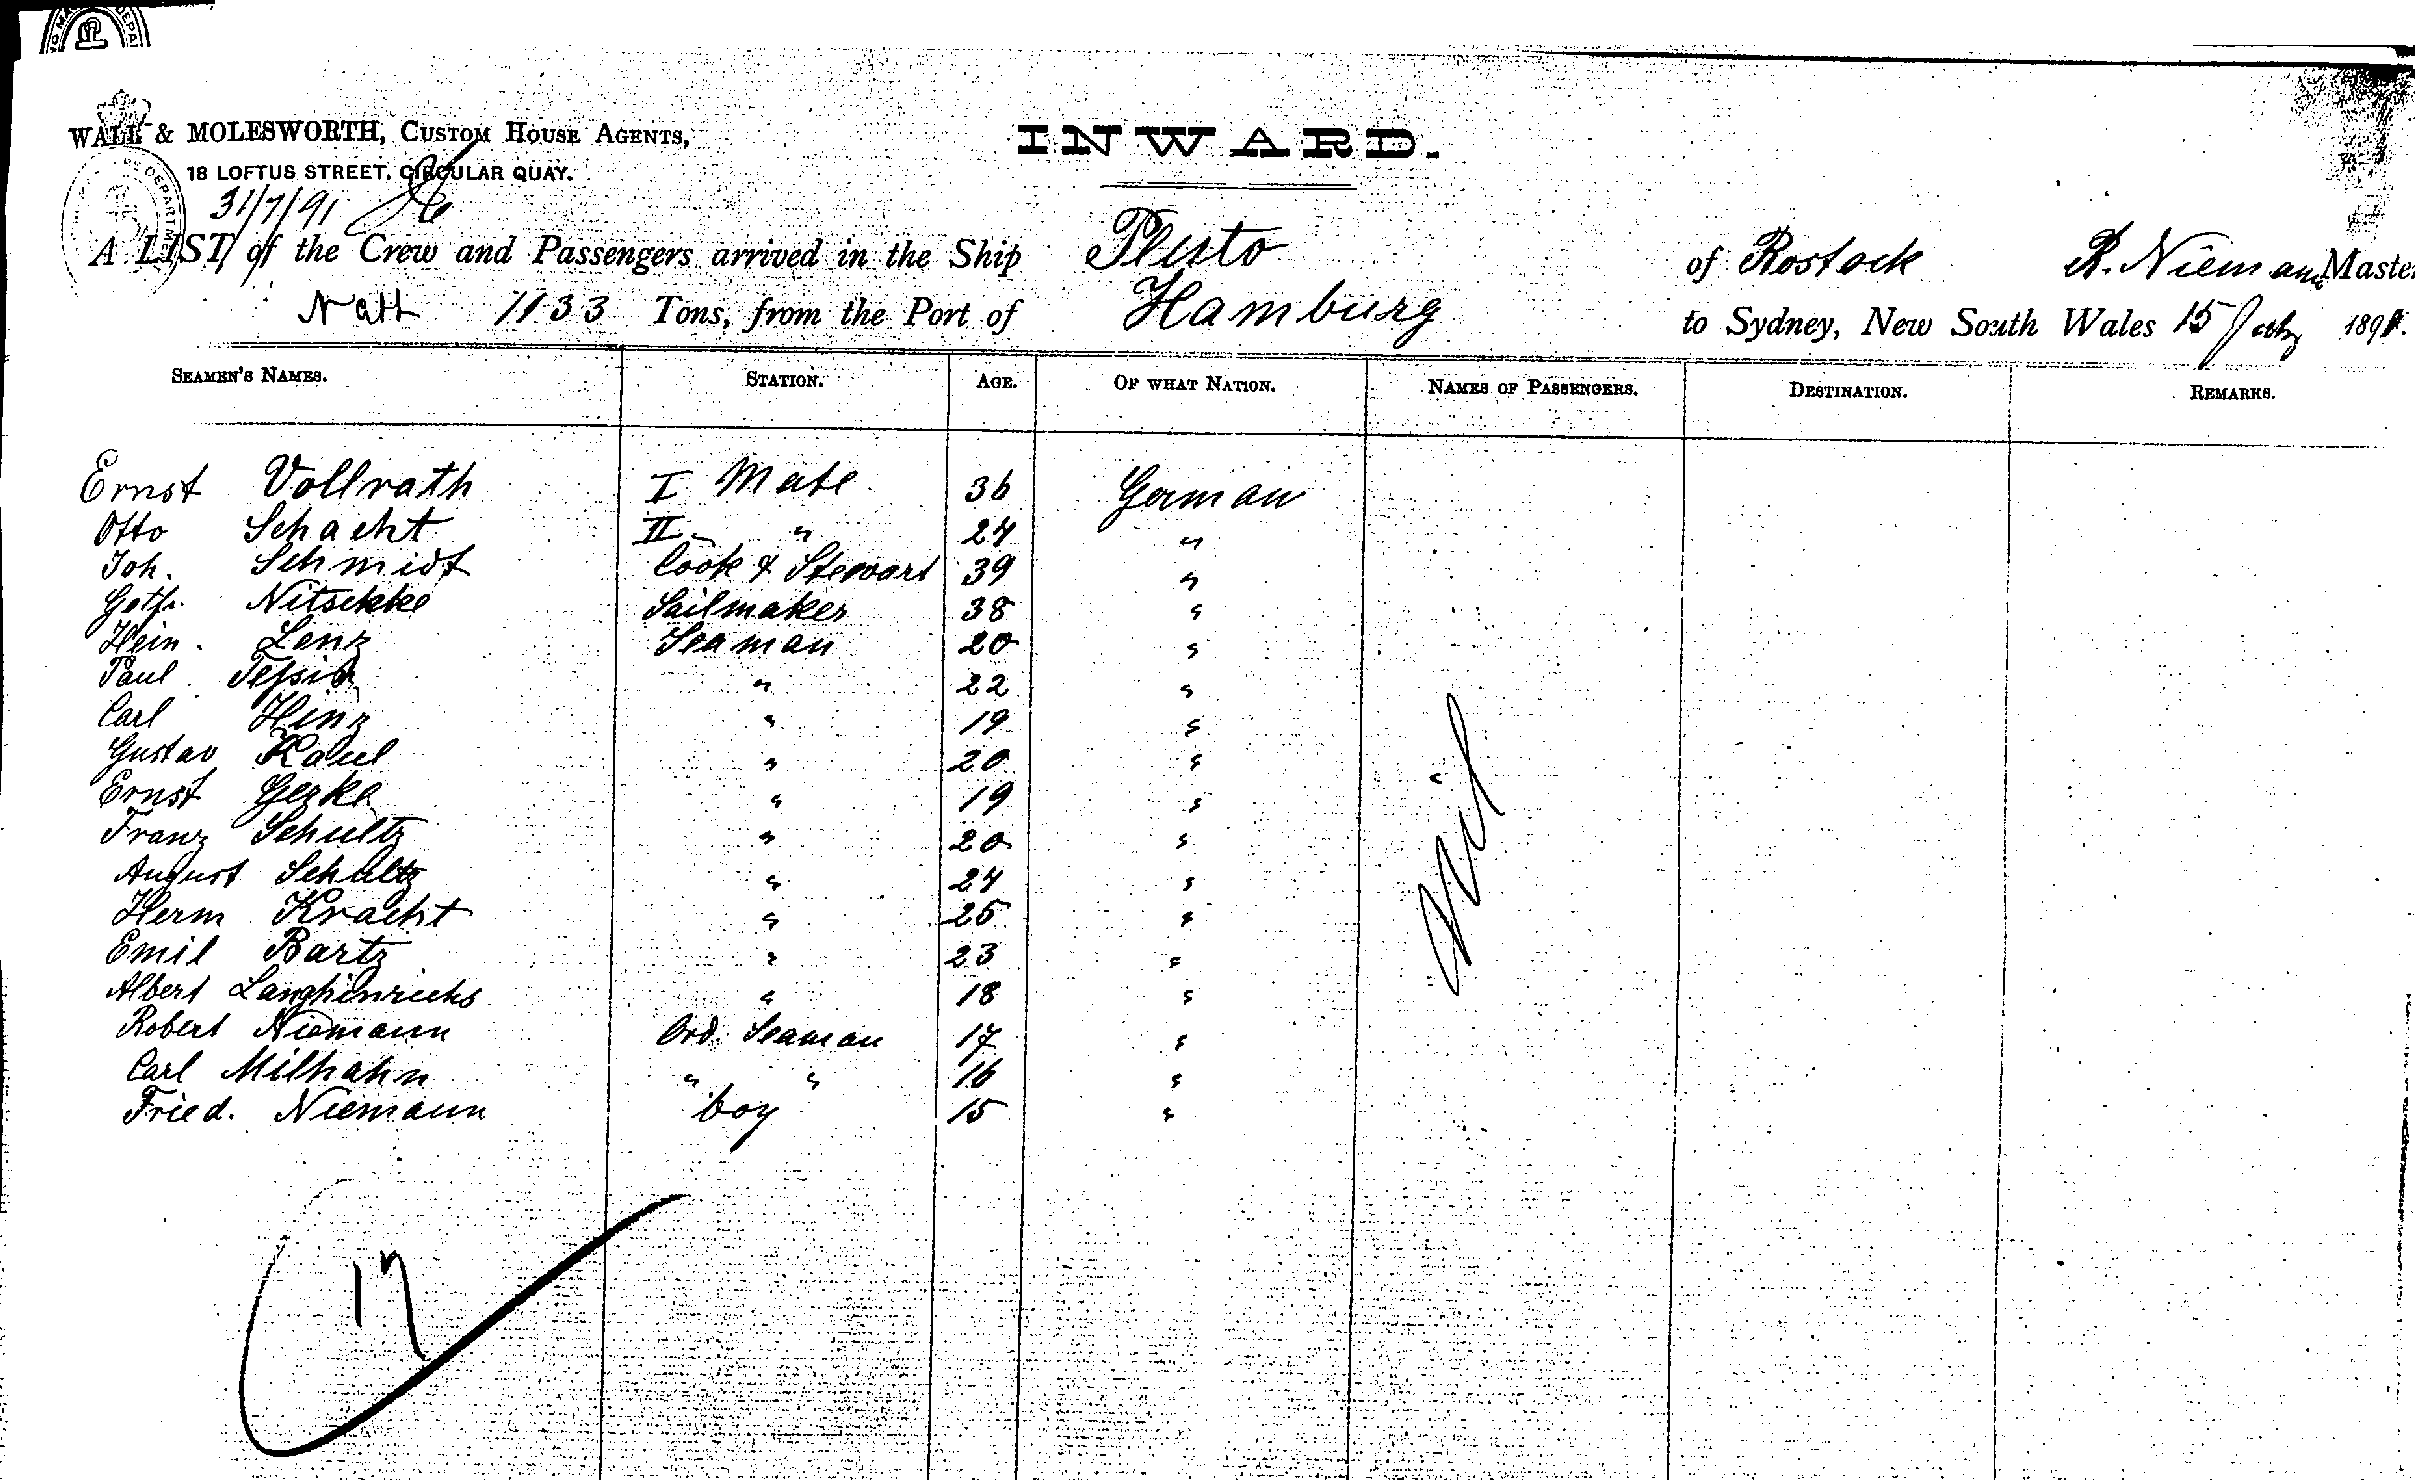 WALL & MOLESWORTH, CUSTOM HOUSE AGENTS,
18 LOFTUS STREET, CIRCULAR QUAY.
31/7/91
INWARD.
A LIST of the Crew and Passengers arrived in the Ship Pluto of Rostock R. Niemann Master
Nett 1133 Tons, from the Port of Hamburg to Sydney, New South Wales 15 July 1891.
SEAMEN'S NAMES. STATION. AGE. OF WHAT NATION. NAMES OF PASSENGERS. DESTINATION. REMARKS.
Ernst Vollrath I Mate 36 German
Otto Schacht II " 24 "
Joh. Schmidt Cook & Stewart 39 "
Gotfr. Nitschke Sailmaker 38 "
Hein. Lenz Seaman 20 "
Paul " 22 "
Carl Hinz " 19 "
Gustav Kaul " 20 "
Ernst Gerke " 19 "
Franz Schultz " 20 "
August Schultz " 24 "
Herm Kracht " 25 "
Emil Bartz " 23 "
Albert Langhinrichs " 18 "
Robert Niemann Ord. Seaman 17 "
Carl Milhahn " " 16 "
Fried. Niemann boy 15 "
Nil
17